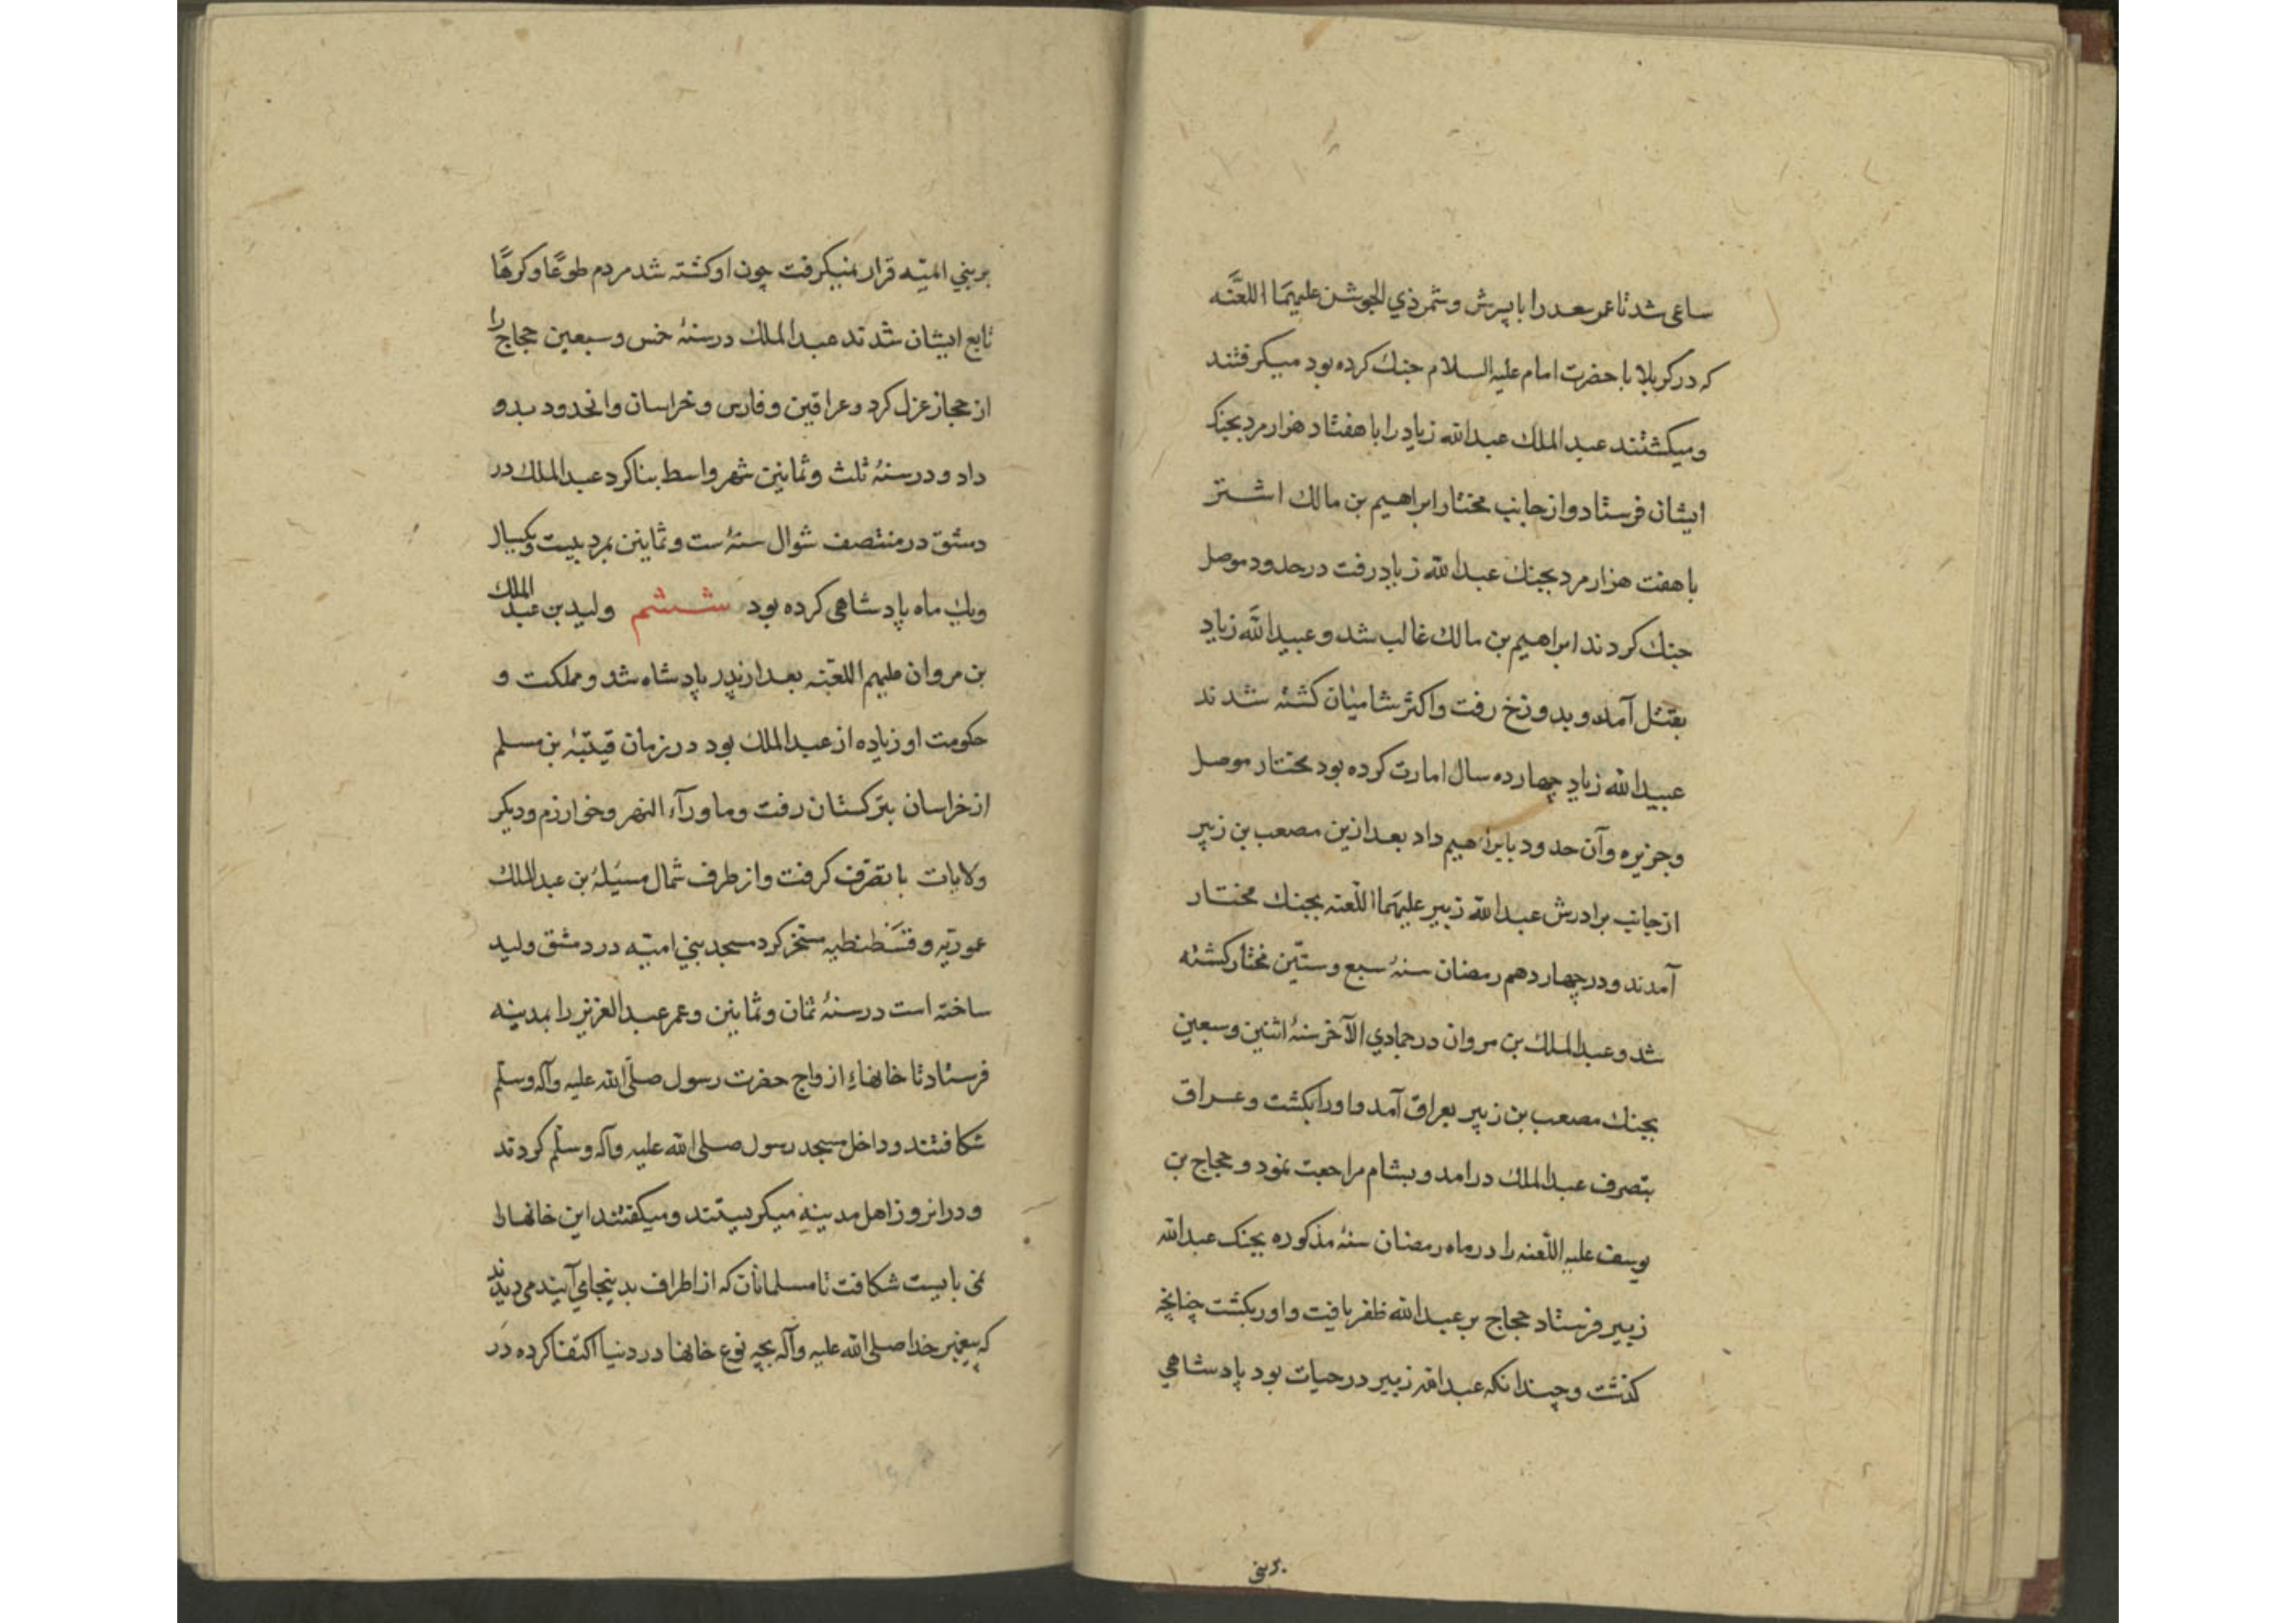 ساعی شد تا عمر سعد را با پسرش و شمر ذي الجوشن علیهما اللعنه
که در کربلا با حضرت امام علیه السلام جنك کرده بود میکرفتند
و میکشتند عبد الملك عبد الله زیاد را با هفتاد هزار مرد بجنك
ایشان فرستاد و از جانب مختار ابراهیم بن مالك اشتر
با هفت هزار مرد بجنك عبد الله زیاد رفت در حدود موصل
جنك کردند ابراهیم بن مالك غالب شد و عبید الله زیاد
بقتل آمد و بدوزخ رفت و اکثر شامیان کشته شدند
عبید الله زیاد چهارده سال امارت کرده بود مختار موصل
و جزیره و آن حدود بابراهیم داد بعد ازین مصعب بن زبیر
از جانب برادرش عبد الله زبیر علیهما اللّعنه بجنك مختار
آمدند و در چهاردهم رمضان سنهٔ سبع و ستّین مختار کشته
شد و عبد الملك بن مروان در جمادي الآخر سنهٔ اثنین و سبعین
بجنك مصعب بن زبیر بعراق آمد و اورا بکشت و عراق
بتصرف عبد الملك درامد و بشام مراجعت نمود و حجاج بن
یوسف علیه اللّعنه را در ماه رمضان سنهٔ مذکوره بجنك عبد الله
زبیر فرستاد حجاج بر عبد الله ظفر یافت و اورا بکشت چنانچه
کذشت و چندانکه عبد الله زبیر در حیات بود پادشاهي
بر بنی
بر بني امیّه قرار نمیکرفت چون او کشته شد مردم طوعًا و کرهًا
تابع ایشان شدند عبد الملك در سنهٔ خمس و سبعین حجاج را
از حجاز عزل کرد و عراقین و فارس و خراسان و انحدود بدو
داد و در سنهٔ ثلث و ثمانین شهر واسط بنا کرد عبد الملك در
دمشق در منتصف شوال سنهٔ ست و ثمانین بمرد بیست و یکسال
و یك ماه پادشاهی کرده بود ششم ولید بن عبد الملك
بن مروان علیهم اللعنه بعد از پدر پادشاه شد و مملکت و
حکومت او زیاده از عبد الملك بود در زمان قیتبهٔ بن مسلم
از خراسان بترکستان رفت و ماورآء النهر و خوارزم و دیکر
ولایات با تصرف کرفت و از طرف شمال مسیلهٔ بن عبد الملك
عموریه و قسطنطیه مسخّر کرد مسجد بني امیّه در دمشق ولید
ساخته است در سنهٔ ثمان و ثمانین و عمر عبد العزیز را بمدینه
فرستاد تا خانهاء ازواج حضرت رسول صلّی الله علیه وآله وسلّم
شکافتند و داخل مسجد رسول صلی الله علیه وآله وسلّم کردند
و در انروز اهل مدینه میکریستند و میکفتند این خانهارا
نمی بایست شکافت تا مسلمانان که از اطراف بدینجا می آیند می دیدند
که پیغمبر خدا صلی الله علیه وآله بچه نوع خانها در دنیا اکتفا کرده در